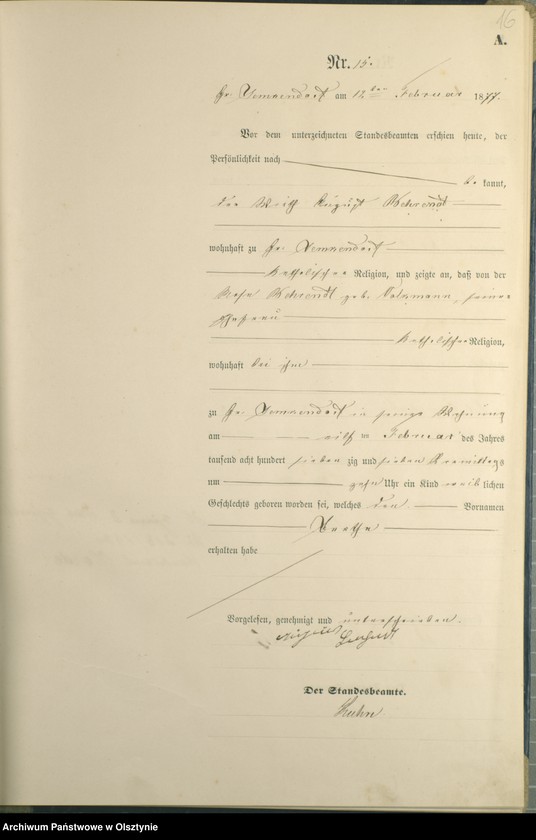 16
A.
Nr. 15.
Gr. am 12ten Februar 1877.
Vor dem unterzeichneten Standesbeamten erschien heute, der
Persönlichkeit nach
be kannt,
der Wirth August Behrendt
wohnhaft zu Gr.
katholischer Religion, und zeigte an, daß von der
Rosa Behrendt geb. seiner
Ehefrau
katholischer Religion,
wohnhaft bei ihm
zu Gr. in seiner Wohnung
am elften Februar des Jahres
tausend acht hundert sieben zig und sieben Vormittags
um zehn Uhr ein Kind weib lichen
Geschlechts geboren worden sei, welches den Vornamen
Martha
erhalten habe
Vorgelesen, genehmigt und unterschrieben.
Der Standesbeamte.
Archiwum Państwowe w Olsztynie